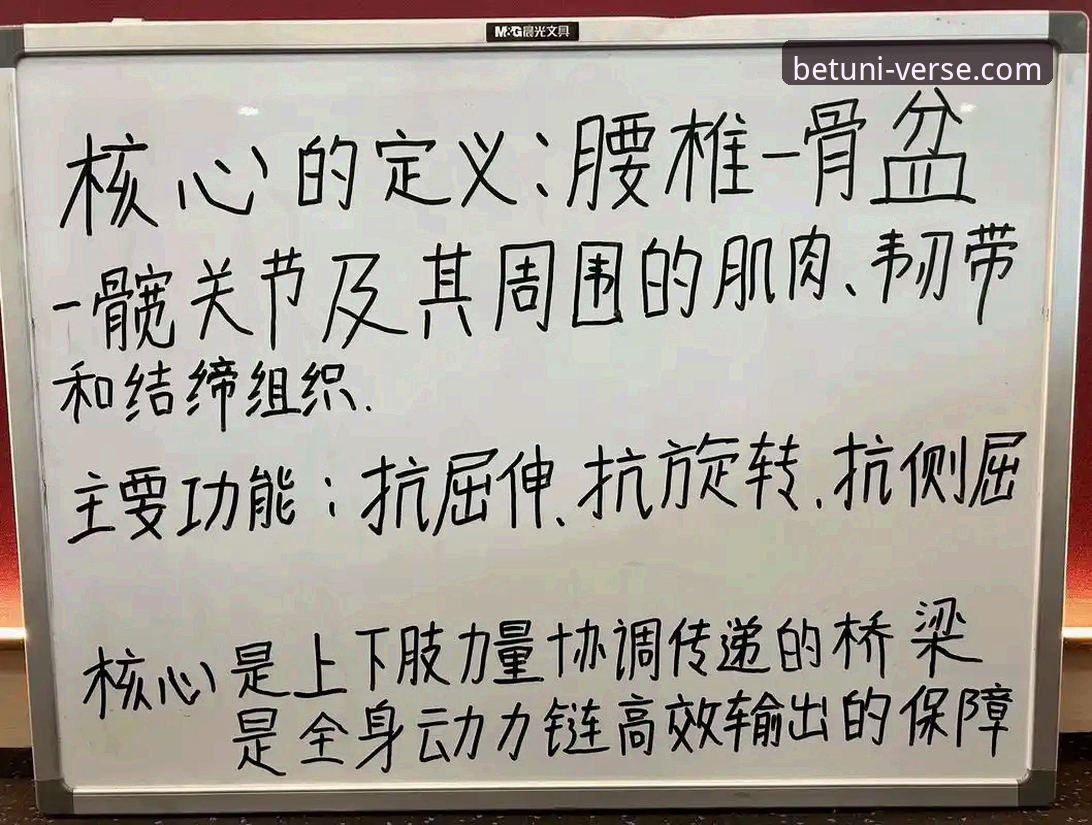 M&G晨光文具
betuni-verse.com
核心的定义:腰椎-骨盆
-髋关节及其周围的肌肉、韧带
和结缔组织.
主要功能:抗屈伸、抗旋转、抗侧屈
核心是上下肢力量协调传递的桥梁
是全身动力链高效输出的保障